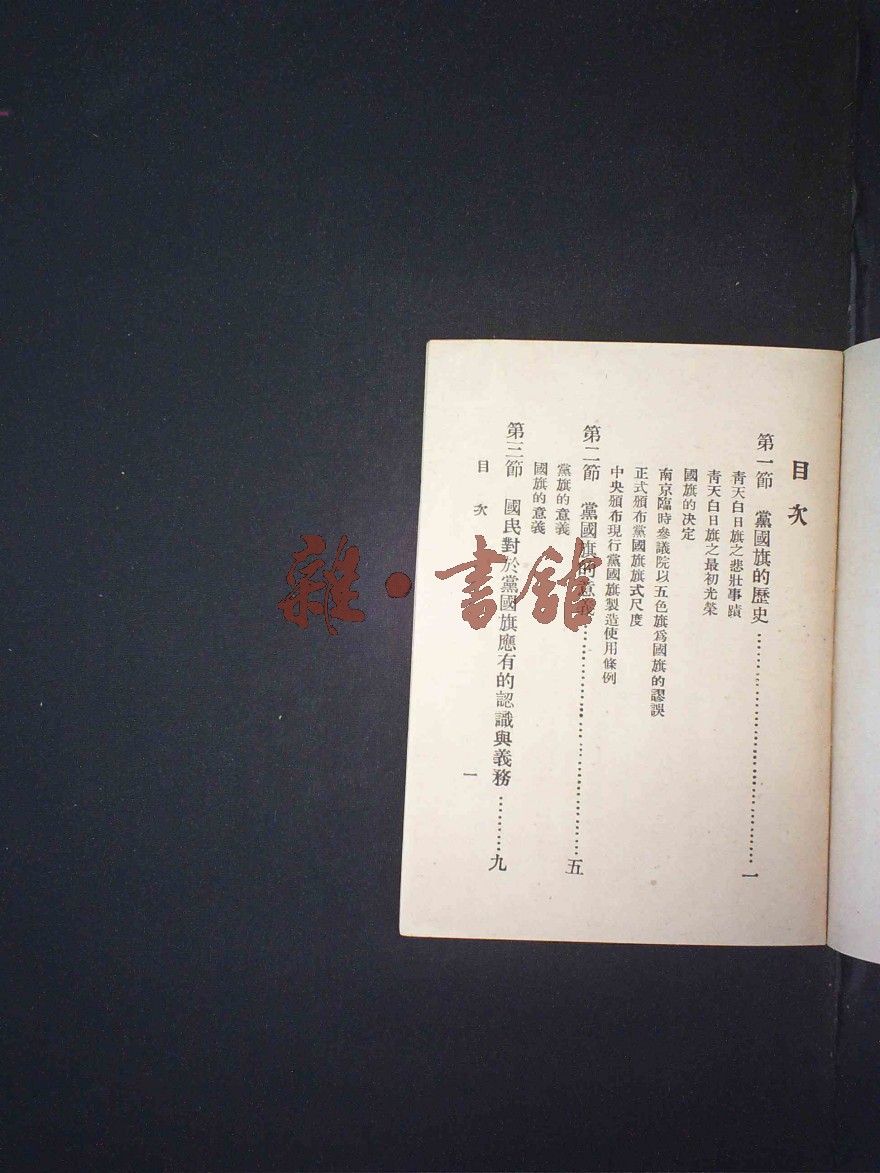 目次
第一節 黨國旗的歷史……………………一
青天白日旗之悲壯事蹟
青天白日旗之最初光榮
國旗的決定
南京臨時參議院以五色旗爲國旗的謬誤
正式頒布黨國旗旗式尺度
中央頒布現行黨國旗製造使用條例
第二節 黨國旗的意義……………………五
黨旗的意義
國旗的意義
第三節 國民對於黨國旗應有的認識與義務………九
目次
一
雜·書館